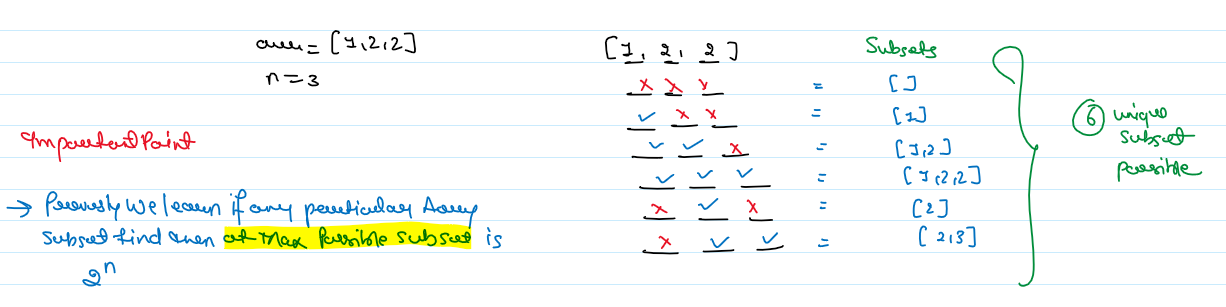 arr = [1,2,2]
n=3
Important Point
→ Previously we learn if any particular Array
subset find then at max possible subset is
2ⁿ
[1, 2, 2] Subsets
x x x = []
✓ x x = [1]
✓ ✓ x = [1,2]
✓ ✓ ✓ = [1,2,2]
x ✓ x = [2]
x ✓ ✓ = [2,3]
6 unique
subset
possible